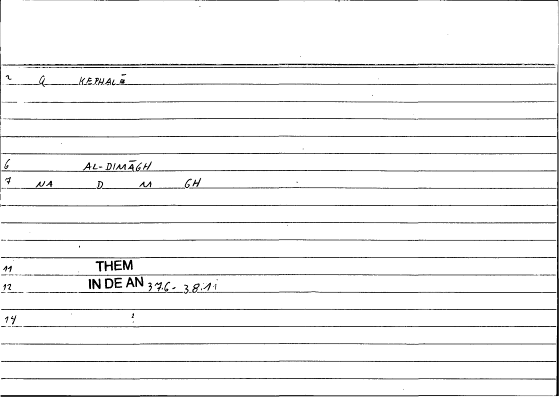 2 G KEPHALĒ
6 AL-DIMĀGH
7 NA D M GH
11 THEM
12 IN DE AN 37.6 - 38.1;
14